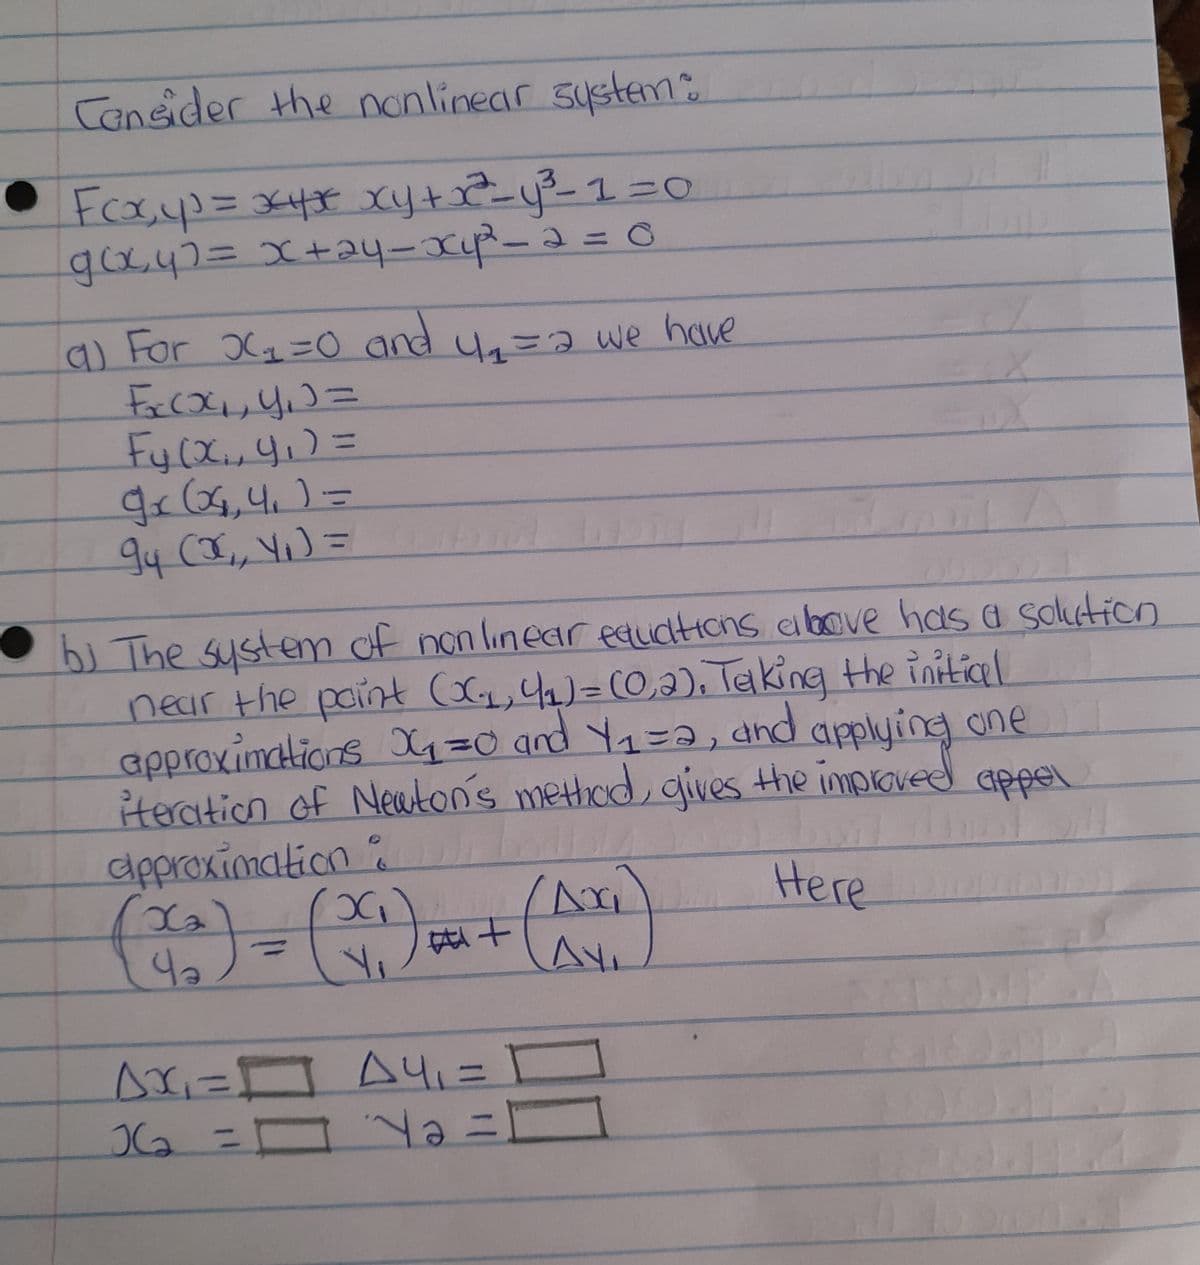 Consider the nonlinear system:
F(x,y) = xy + x² - y³ - 1 = 0
g(x,y) = x + 2y - xy² - 2 = 0
a) For x₁ = 0 and y₁ = 2 we have
Fx(x₁, y₁) =
Fy(x₁, y₁) =
gx(x₁, y₁) =
gy(x₁, y₁) =
b) The system of non linear equations above has a solution
near the point (x₁, y₁) = (0,2). Taking the initial
approximations x₁ = 0 and y₁ = 2, and applying one
iteration of Newton's method, gives the improved
approximation :
(x₂ y₂) = (x₁ y₁) + (Δx₁ Δy₁) Here
Δx₁ = □ Δy₁ = □
x₂ = □ y₂ = □